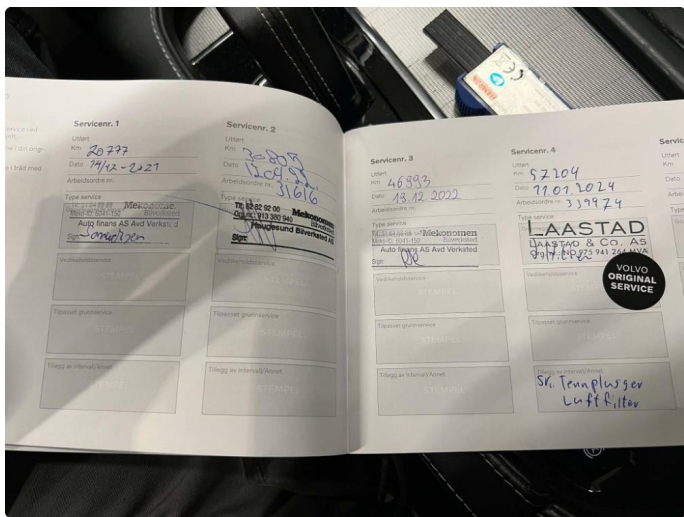 Servicenr. 1
Utført
Km 20777
Dato 14/12-2021
Arbeidsordre nr.
Type service
Mekonomen
Bilverksted
Auto finans AS Avd Verksted
Sign:
Vedlikeholdsservice
STEMPEL
Tilpasset grunnservice
STEMPEL
Tillegg av intervall/Annet
STEMPEL
Servicenr. 2
Utført
Km 30807
Dato
Arbeidsordre nr. 31616
Type service
Tlf. 52 82 92 00
Org.nr.: 913 360 940
Mekonomen
Haugesund Bilverksted AS
Sign:
Vedlikeholdsservice
STEMPEL
Tilpasset grunnservice
STEMPEL
Tillegg av intervall/Annet
STEMPEL
Servicenr. 3
Utført
Km 46893
Dato 13.12.2022
Arbeidsordre nr.
Type service
Mekonomen
Bilverksted
Auto finans AS Avd Verksted
Sign:
Vedlikeholdsservice
Tilpasset grunnservice
Tillegg av intervall/Annet
Servicenr. 4
Utført
Km 57204
Dato 11.01.2024
Arbeidsordre nr. 339974
Type service
LAASTAD
LAASTAD & CO. AS
VOLVO
ORIGINAL
SERVICE
Tilpasset grunnservice
Tillegg av intervall/Annet
SK. Tennplugger
Luftfilter